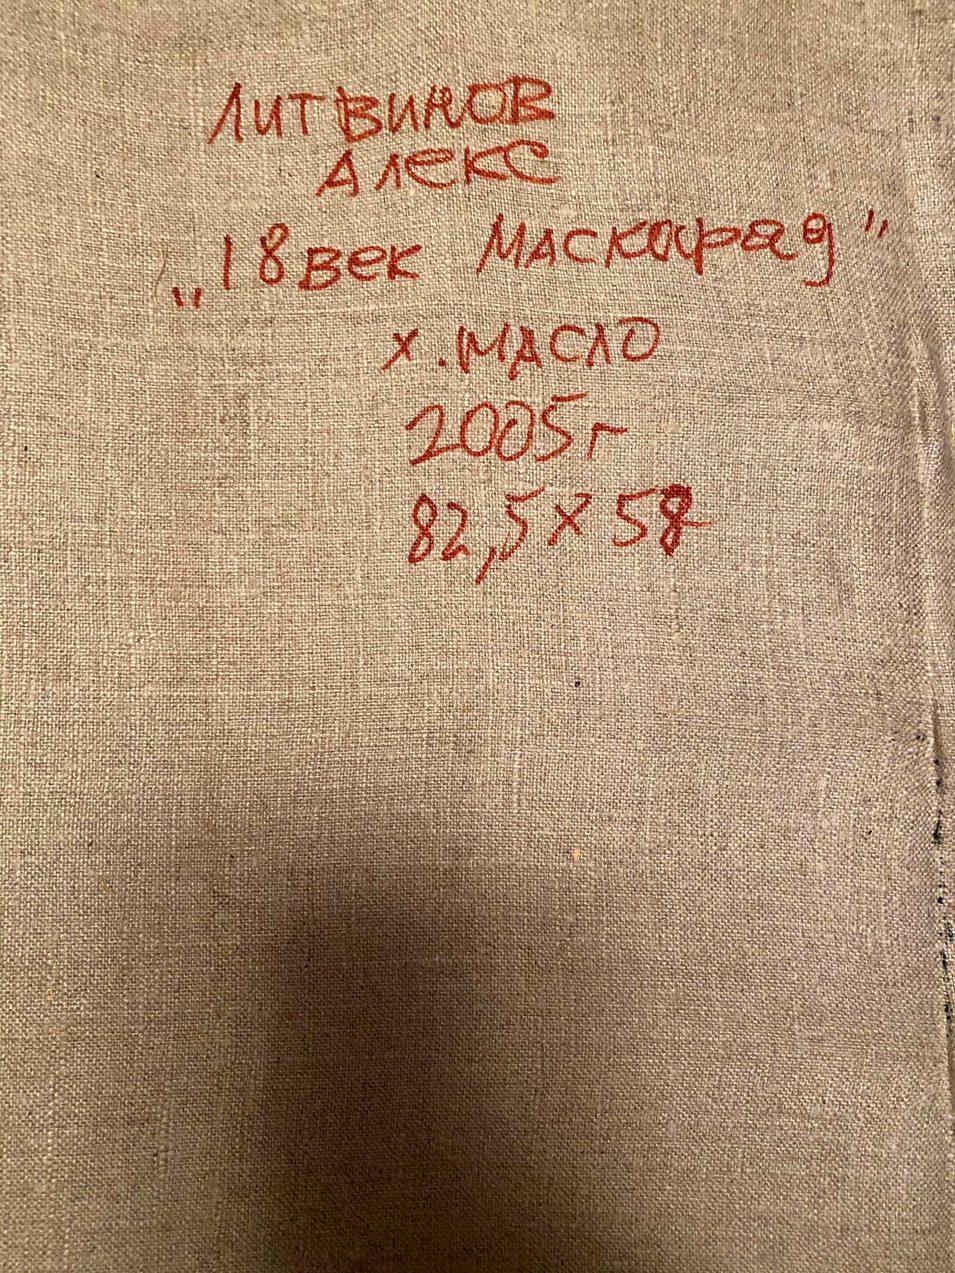 ЛИТВИНОВ
АЛЕКС
„18 век МАСКАРАД"
х. МАСЛО
2005г
82,5 х 58